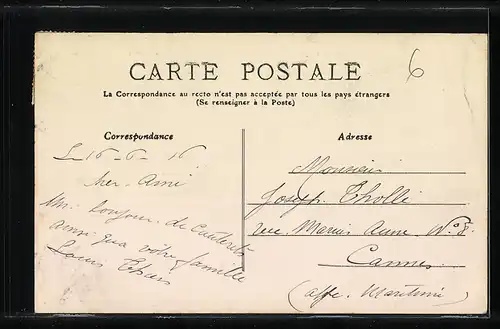 CARTE POSTALE
6
La Correspondance au recto n'est pas acceptée par tous les pays étrangers
(Se renseigner à la Poste)
Correspondance
Adresse
L 16-6-16
Cher Ami
Un bonjour de Cauterets
ainsi qua votre famille
Louis
Monsieur
Joseph Tholli
rue Marius Aune No 8.
Cannes
(Alpe. Maritime)